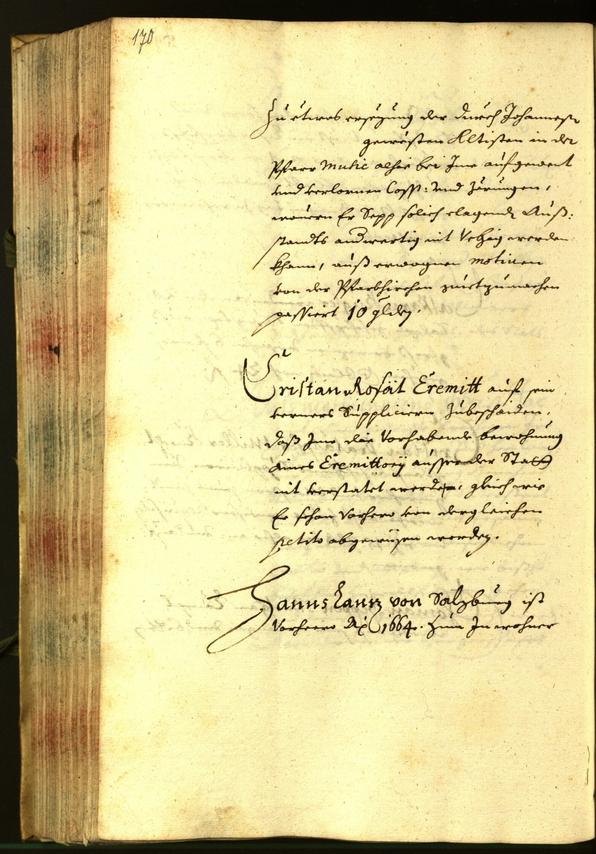 170
Zu etwas ersezung der durch Johannesen
gewesten Altisten in der
Pfarr Music alhie bei Ime aufgewent
und verlornen Cosst: und Zörungen,
wouern Er Sepp solich clagende Auß:
standts anderwertig nit vehig werden
khann, auß erwognen motiuen
von der Pfarrkhirchen zuertzumachen
passiert 10 glden.
Cristan Rosait Eremitt auf sein
ferners Suppliciern zubeschaiden,
daß Ime die vorhabende bewohnung
aines Eremittorij ausser der Statt
nit verstatet werde, gleich wie
Er schon vorhero von dergleichen
petito abgewisen worden.
Hanns Lanz von Salzburg ist
vorhero 1664. zum Inwohner